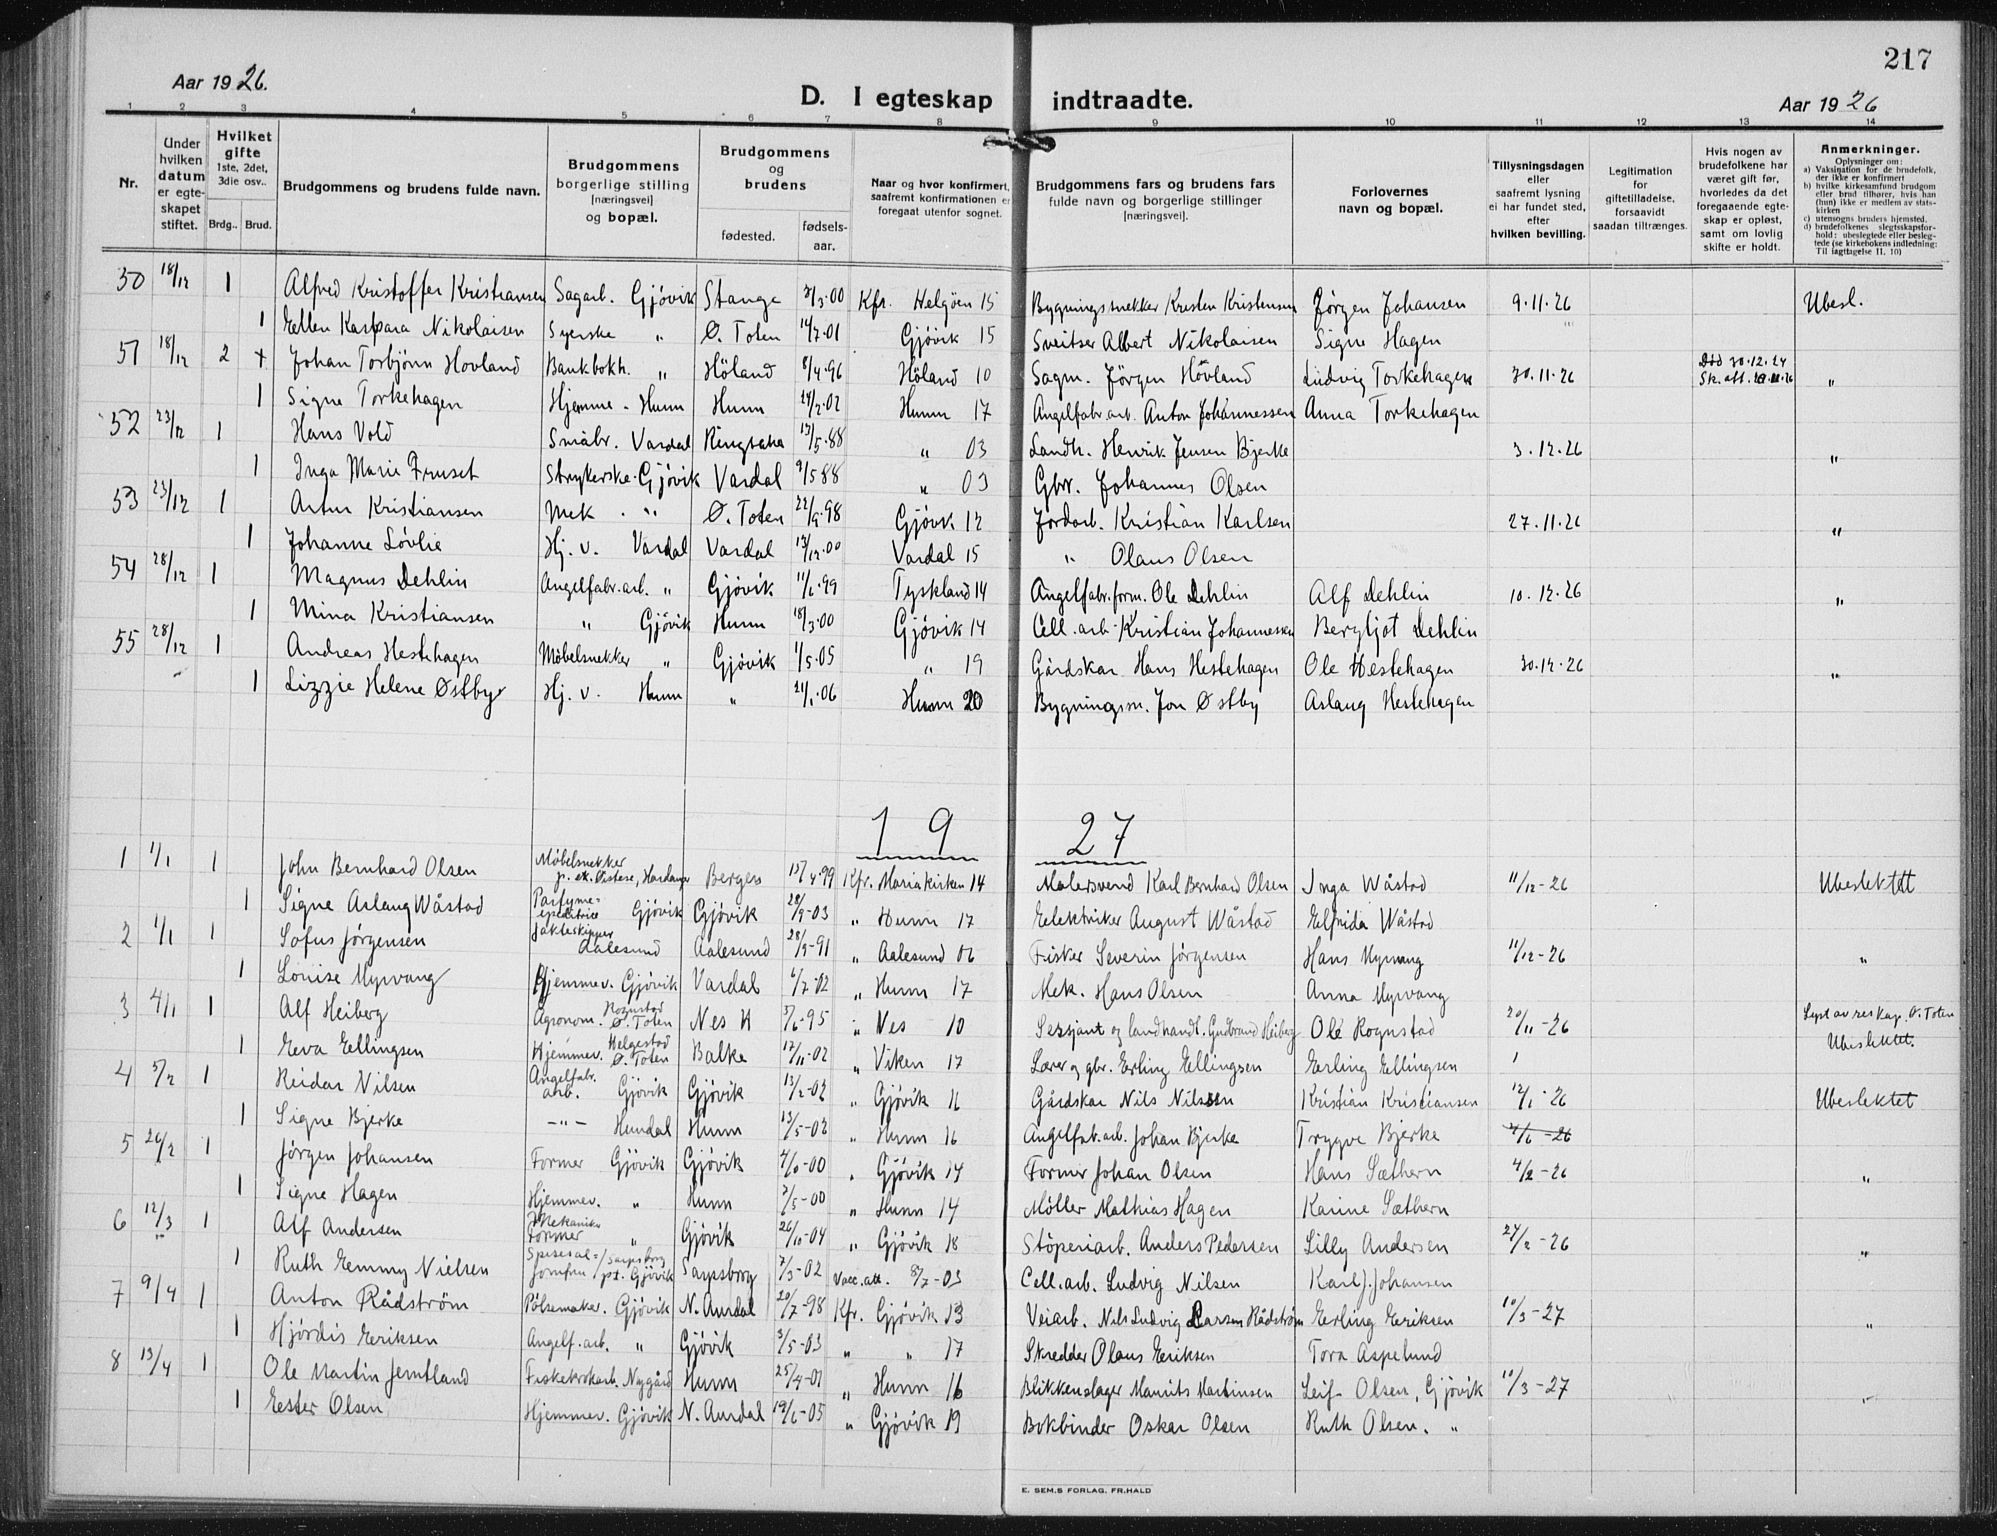 217
Aar 1926.
D. I egteskap indtraadte.
Aar 1926
1 2 3 4 5 6 7 8 9 10 11 12 13 14
Nr.
Under hvilken datum er egteskapet stiftet.
Hvilket gifte 1ste, 2det, 3die osv..
Brdg.. Brud.
Brudgommens og brudens fulde navn.
Brudgommens borgerlige stilling [næringsvei] og bopæl.
Brudgommens og brudens
fødested. fødselsaar.
Naar og hvor konfirmert, saafremt konfirmationen er foregaat utenfor sognet.
Brudgommens fars og brudens fars fulde navn og borgerlige stillinger [næringsvei].
Forlovernes navn og bopæl.
Tillysningsdagen eller saafremt lysning ei har fundet sted, efter hvilken bevilling.
Legitimation for giftetilladelse, forsaavidt saadan tiltrænges.
Hvis nogen av brudefolkene har været gift før, hvorledes da det foregaaende egteskap er opløst, samt om lovlig skifte er holdt.
Anmerkninger.
Oplysninger om:
a) Vaksination for de brudefolk, der ikke er konfirmert
b) hvilke kirkesamfund brudgom eller brud tilhører, hvis han (hun) ikke er medlem av statskirken
c) utensogns bruders hjemsted.
d) brudefolkenes slegtsskapsforhold: ubeslegtede eller beslegtede (se kirkebokens indledning: Til iagttagelse II. 10)
50 18/12 1 Alfred Kristoffer Kristiansen Sagarb. Gjøvik Stange 3/3.00 Kfr. Helgøen 15 Bygningssnekker Kristen Kristensen Jørgen Johansen 9.11.26 Ubesl.
1 Ellen Kaspara Nikolaisen Syerske " Ø. Toten 14/7.01 Gjøvik 15 Sveitser Albert Nikolaisen Signe Hagen
51 18/12 2 + Johan Torbjørn Hovland Bankbokh. " Höland 8/4.96 Höland 10 Sagm. Jörgen Hövland Ludvig Torkehagen 30.11.26 Död 30.12.24 "
1 Signe Torkehagen Hjemme - Hunn Hunn 24/2.02 Hunn 17 Angelfabr.arb. Anton Johannessen Anna Torkehagen
52 23/12 1 Hans Vold Småbr. Vardal Ringsaker 13/5.88 " 03 Landh. Henrik Jensen Bjerke 3.12.26 "
1 Inga Marie Fruset Strykerske. Gjøvik Vardal 9/5 88 " 03 Gbr. Johannes Olsen
53 23/12 1 Artur Kristiansen Mek. " Ø. Toten 22/9.98 Gjøvk 12 Jordarb. Kristian Karlsen 27.11.26 "
1 Johanne Lövlie Hj. v. Vardal Vardal 13/12.00 Vardal 15 " Olaus Olsen
54 28/12 1 Magnus Dehlin Angelfabr.arb. " Gjövik 11/6.99 Tyskland 14 Angelfabr.form. Ole Dehlin Alf Dehlin 10.12.26 "
1 Mina Kristiansen " Gjøvik Hunn 18/3.00 Gjøvik 14 Cell.arb. Kristian Johannessen Bergljot Dehlin
55 28/12 1 Andreas Hestehagen Möbelsnekker " Gjøvik 1/5.05 " 19 Gårdskar Hans Hestehagen Ole Hestehagen 30.12.26 "
1 Lizzie Helene Østbye Hj. v. Hunn " 21/1.06 Hunn 20 Bygningssn. Jon Østby Aslaug Hestehagen
1927
1 1/1 1 John Bernhard Olsen Møbelsnekker Bergen 15/4.99 Kfr. Mariakirken 14 Malersvend Karl Bernhard Olsen Inga Wåstad 11/12-26 Ubeslektet
1 Signe Aslaug Wåstad Gjøvik Gjøvik 28/9-03 " Hunn 17 Elektriker August Wåstad Elfrida Wåstad
2 1/1 1 Sofus Jørgensen Jakteskipper Aalesund Aalesund 28/9-91 " Aalesund 06 Fisker Severin Jørgensen Hans Myrvang 11/12-26 "
1 Louise Myrvang Hjemmev. Gjøvik Vardal 6/7-02 " Hunn 17 Mek. Hans Olsen Anna Myrvang
3 4/1 1 Alf Heiberg Agronom. Rognstad Ø. Toten Nes H 3/6-95 " Nes 10 Sersjant og landhandl. Gudbrand Heiberg Ole Rognstad 20/11-26 Lyst av res kap. Ø. Toten
1 Eva Ellingsen Hjemmev. Helgestad Ø. Toten Balke 12/11-02 " Viken 17 Lærer og gbr. Erling Ellingsen Erling Ellingsen Ubeslektet.
4 5/2 1 Reidar Nilsen Angelfabr. arb. Gjøvik Gjøvik 13/2-02 " Gjøvik 16 Gårdskar Nils Nilsen Kristian Kristiansen 12/1-26 Ubeslektet
1 Signe Bjerke -"- Hundal Hunn 13/5-02 " Hunn 16 Angelfab.arb. Johan Bjerke Trygve Bjerke
5 26/2 1 Jörgen Johansen Former Gjövik Gjövik 4/6-00 " Gjövik 14 Former Johan Olsen Hans Sæthern 4/2-26 "
1 Signe Hagen Hjemmev. " Hunn 7/5-00 " Hunn 14 Möller Mathias Hagen Karine Sæthern
6 12/3 1 Alf Andersen Former " Gjøvik 26/10-04 " Gjøvik 18 Støperiarb. Anders Pedersen Lilly Andersen 24/2-26 "
1 Ruth Emmy Nielsen Spisesaljomfru / Sarpsborg pt. Gjøvik Sarpsborg 7/3-02 Vacc.att. 8/7-03 Cell.arb. Ludvig Nilsen Karl J. Johansen
7 9/4 1 Anton Rådström Pölsemaker. Gjøvik N. Aurdal 20/7-98 Kfr. Gjøvik 13 Veiarb. Nils Ludvig Larsen Rådström Erling Eriksen 10/3-27 "
1 Hjördis Eriksen Angelf.arb. " Gjøvik 3/5-03 " " 17 Skredder Olaus Eriksen Tora Aspelund
8 13/4 1 Ole Martin Jemtland Fiskekrokarb. Nygård Hunn 25/4-01 " Hunn 16 Blikkenslager Maurits Martinsen Leif Olsen, Gjøvik 10/3-27 "
1 Ester Olsen Hjemmev. Gjøvik N. Aurdal 19/6-05 " Gjøvik 19 Bokbinder Oskar Olsen Ruth Olsen. "
E. SEM.S FORLAG, FR.HALD